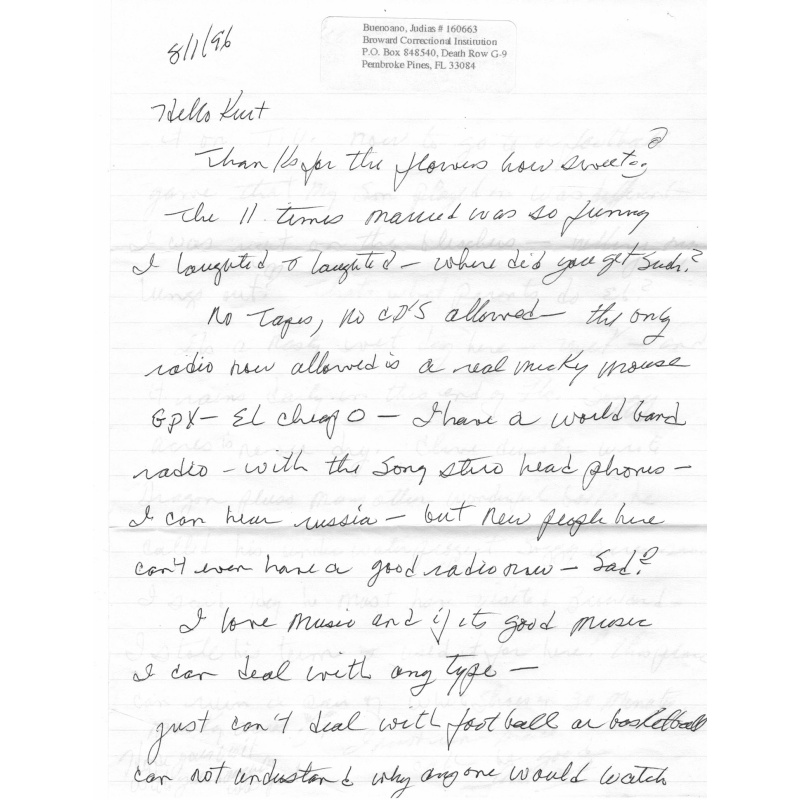 Buenoano, Judias # 160663
Broward Correctional Institution
P.O. Box 848540, Death Row G-9
Pembroke Pines, FL 33084
8/1/96
Hello Kurt
Thanks for the flowers how sweet
The 11 times married was so funny
I laughted & laughted – where did you get such?
No Tapes, No CD'S allowed – the only
radio now allowed is a real micky mouse
GPX – El cheapo – I have a world band
radio – with the Song sterio head phones –
I can hear russia – but new people here
can't even have a good radio now – Sad?
I love music and if its good music
I can deal with any type –
just can't deal with football or basketball
can not understand why anyone would watch